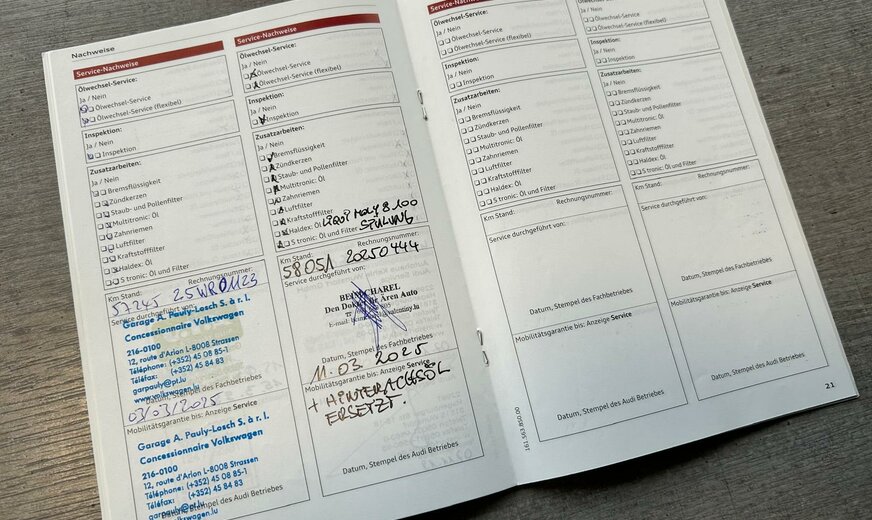 Nachweise
Service-Nachweise
Ölwechsel-Service:
Ja / Nein
Ölwechsel-Service
Ölwechsel-Service (flexibel)
Inspektion:
Ja / Nein
Inspektion
Zusatzarbeiten:
Ja / Nein
Bremsflüssigkeit
Zündkerzen
Staub- und Pollenfilter
Multitronic: Öl
Zahnriemen
Luftfilter
Kraftstofffilter
Haldex: Öl
S tronic: Öl und Filter
Km Stand: Rechnungsnummer:
57245 25WR01123
Service durchgeführt von:
Garage A. Pauly-Losch S. à r. l.
Concessionnaire Volkswagen
216-0100
12, route d'Arlon L-8008 Strassen
Téléphone: (+352) 45 08 85-1
Téléfax: (+352) 45 84 83
garpauly@pt.lu
www.volkswagen.lu
Datum, Stempel des Fachbetriebes
03/03/2025
Mobilitätsgarantie bis: Anzeige Service
Garage A. Pauly-Losch S. à r. l.
Concessionnaire Volkswagen
216-0100
12, route d'Arlon L-8008 Strassen
Téléphone: (+352) 45 08 85-1
Téléfax: (+352) 45 84 83
garpauly@pt.lu
Datum, Stempel des Audi Betriebes
Service-Nachweise
Ölwechsel-Service:
Ja / Nein
Ölwechsel-Service
Ölwechsel-Service (flexibel)
Inspektion:
Ja / Nein
Inspektion
Zusatzarbeiten:
Ja / Nein
Bremsflüssigkeit
Zündkerzen
Staub- und Pollenfilter
Multitronic: Öl
Zahnriemen
Luftfilter
Kraftstofffilter
Haldex: Öl LIQUI MOLY 8100
S tronic: Öl und Filter SPÜLUNG
Km Stand: Rechnungsnummer:
58051 20250444
Service durchgeführt von:
Den Dokter Ären Auto
E-mail:
Datum, Stempel des Fachbetriebes
11.03.2025
Mobilitätsgarantie bis: Anzeige Service
+ HINTERACHSÖL
ERSETZT.
Datum, Stempel des Audi Betriebes
Service-Nachweise
Ölwechsel-Service:
Ja / Nein
Ölwechsel-Service
Ölwechsel-Service (flexibel)
Inspektion:
Ja / Nein
Inspektion
Zusatzarbeiten:
Ja / Nein
Bremsflüssigkeit
Zündkerzen
Staub- und Pollenfilter
Multitronic: Öl
Zahnriemen
Luftfilter
Kraftstofffilter
Haldex: Öl
S tronic: Öl und Filter
Km Stand: Rechnungsnummer:
Service durchgeführt von:
Datum, Stempel des Fachbetriebes
Mobilitätsgarantie bis: Anzeige Service
Datum, Stempel des Audi Betriebes
Ölwechsel-Service:
Ja / Nein
Ölwechsel-Service
Ölwechsel-Service (flexibel)
Inspektion:
Ja / Nein
Inspektion
Zusatzarbeiten:
Ja / Nein
Bremsflüssigkeit
Zündkerzen
Staub- und Pollenfilter
Multitronic: Öl
Zahnriemen
Luftfilter
Kraftstofffilter
Haldex: Öl
S tronic: Öl und Filter
Km Stand: Rechnungsnummer:
Service durchgeführt von:
Datum, Stempel des Fachbetriebes
Mobilitätsgarantie bis: Anzeige Service
Datum, Stempel des Audi Betriebes
21